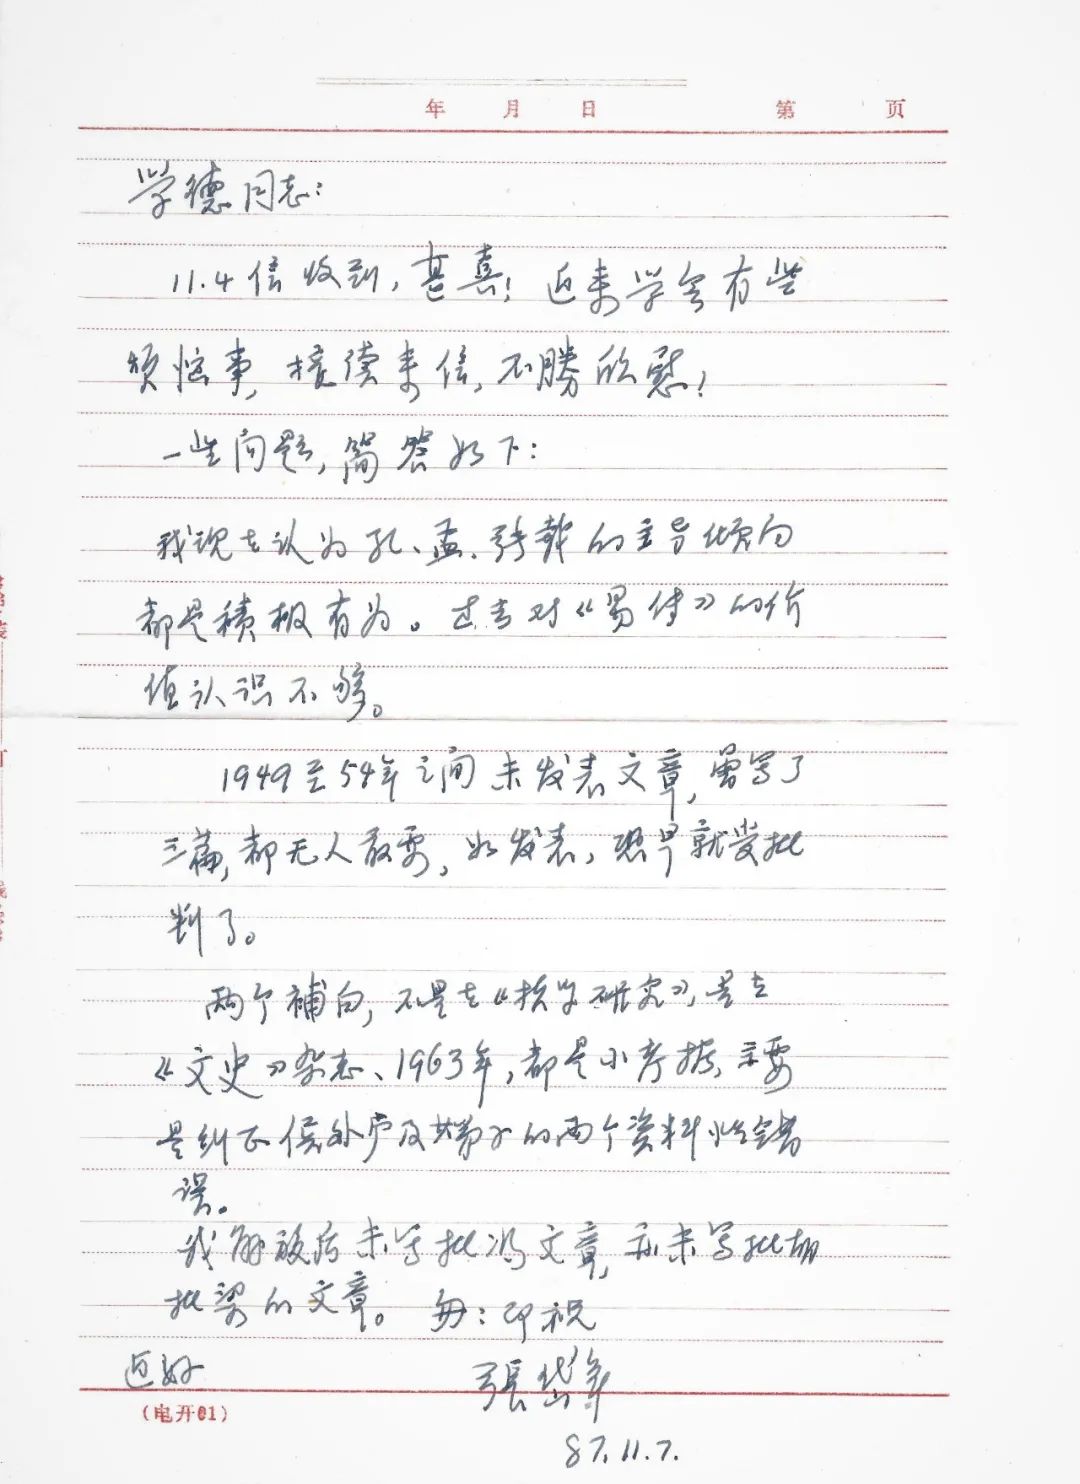 年 月 日 第 页
学德同志：
11.4信收到，甚喜！近来学会有些
烦恼事，接读来信，不勝欣慰！
一些问题，简答如下：
我现在认为孔、孟、张载的主导倾向
都是积极有为。过去对《易传》的价
值认识不够。
1949至54年之间未发表文章，曾写了
三篇，都无人敢要，如发表，恐早就受批
判了。
两个補白，不是在《哲学研究》，是在
《文史》杂志、1963年，都是小考据，主要
是纠正侯外庐及其弟子的两个资料性错
误。
我解放后未写批冯文章，亦未写批胡
批梁的文章。匆：即祝
近好
張岱年
87.11.7.
（电开01）